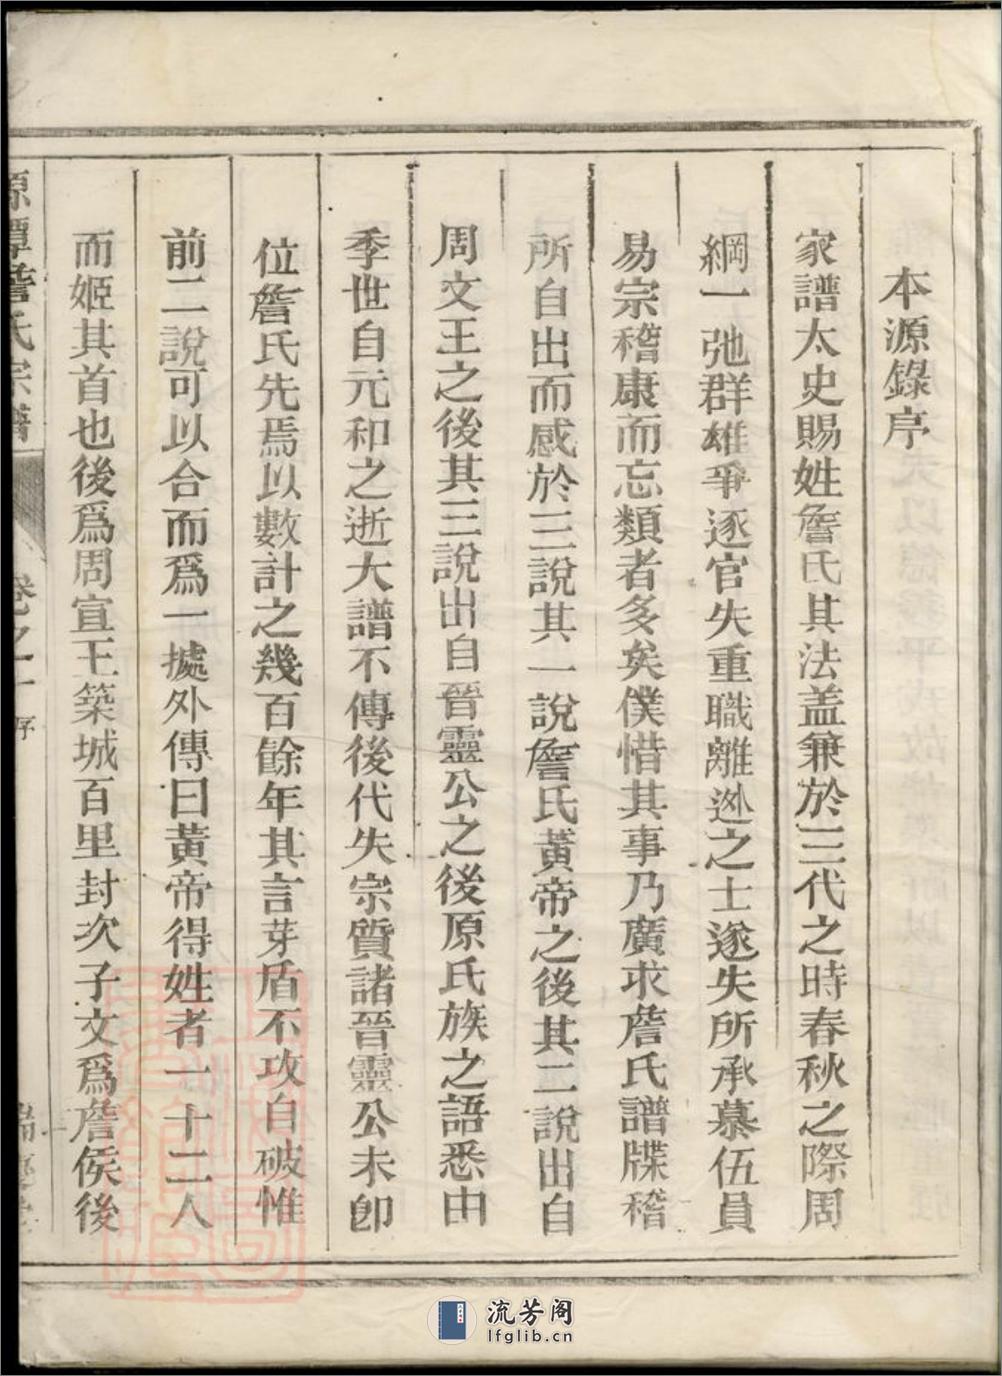 本源錄序
家譜太史賜姓詹氏其法盖兼於三代之時春秋之際周
綱一弛群雄爭逐官失重職離逊之士遂失所承慕伍員
易宗稽康而忘類者多矣僕惜其事乃廣求詹氏譜牒稽
所自出而感於三說其一說詹氏黃帝之後其二說出自
周文王之後其三說出自晉靈公之後原氏族之語悉由
季世自元和之逝大譜不傳後代失宗質諸晉靈公未卽
位詹氏先焉以數計之幾百餘年其言芽盾不攻自破惟
前二說可以合而爲一據外傳曰黃帝得姓者一十二人
而姬其首也後爲周宣王築城百里封次子文爲詹侯後
源潭詹氏宗譜 卷之一 序
流芳阁
lfglib.cn